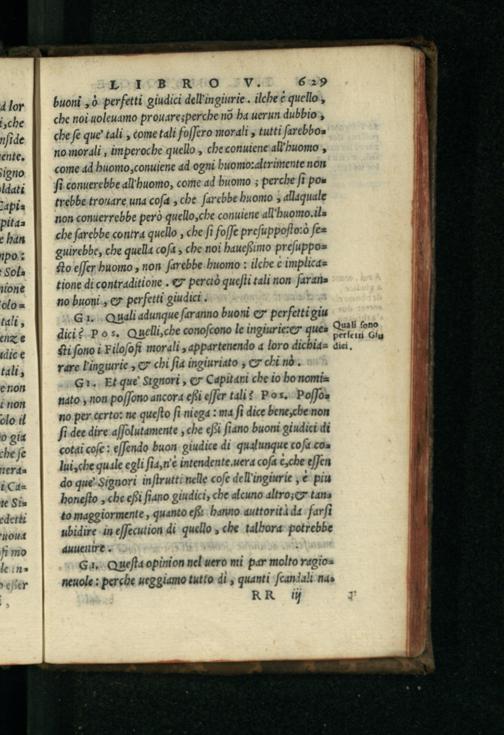 LIBRO V. 629
buoni, ò perfetti giudici dell'ingiurie. ilche è quello,
che noi uoleuamo prouare; perche nõ ha uerun dubbio,
che se que' tali, come tali fossero morali, tutti sarebbo-
no morali, imperoche quello, che conuiene all'huomo,
come ad huomo, conuiene ad ogni huomo: altrimente non
si conuerebbe all'huomo, come ad huomo; perche si po-
trebbe trouare una cosa, che sarebbe huomo, allaquale
non conuerrebbe però quello, che conuiene all'huomo. il-
che sarebbe contra quello, che si fosse presupposto: ò se-
guirebbe, che quella cosa, che noi haueßimo presuppo-
sto esser huomo, non sarebbe huomo: ilche è implica-
tione di contraditione. & perciò questi tali non saran-
no buoni, & perfetti giudici.
GI. Quali adunque saranno buoni & perfetti giu
dici? POS. Quelli, che conoscono le ingiurie: & que-
sti sono i Filosofi morali, appartenendo a loro dichia-
rare l'ingiurie, & chi sia ingiuriato, & chi nò.
Quali sono
perfetti Giu
dici.
GI. Et que' Signori, & Capitani che io ho nomi-
nato, non possono ancora eßi esser tali? POS. Posso-
no per certo: ne questo si niega: ma si dice bene, che non
si dee dire assolutamente, che eßi siano buoni giudici di
cotai cose: essendo buon giudice di qualunque cosa co-
lui, che quale egli sia, n'è intendente. uera cosa è, che essen
do que' Signori instrutti nelle cose dell'ingiurie, è piu
honesto, che eßi siano giudici, che alcuno altro; & tan-
to maggiormente, quanto eßi hanno auttorità da farsi
ubidire in essecution di quello, che talhora potrebbe
auuenire.
GI. Questa opinion nel uero mi par molto ragio-
neuole: perche ueggiamo tutto dì, quanti scandali na-
RR iij